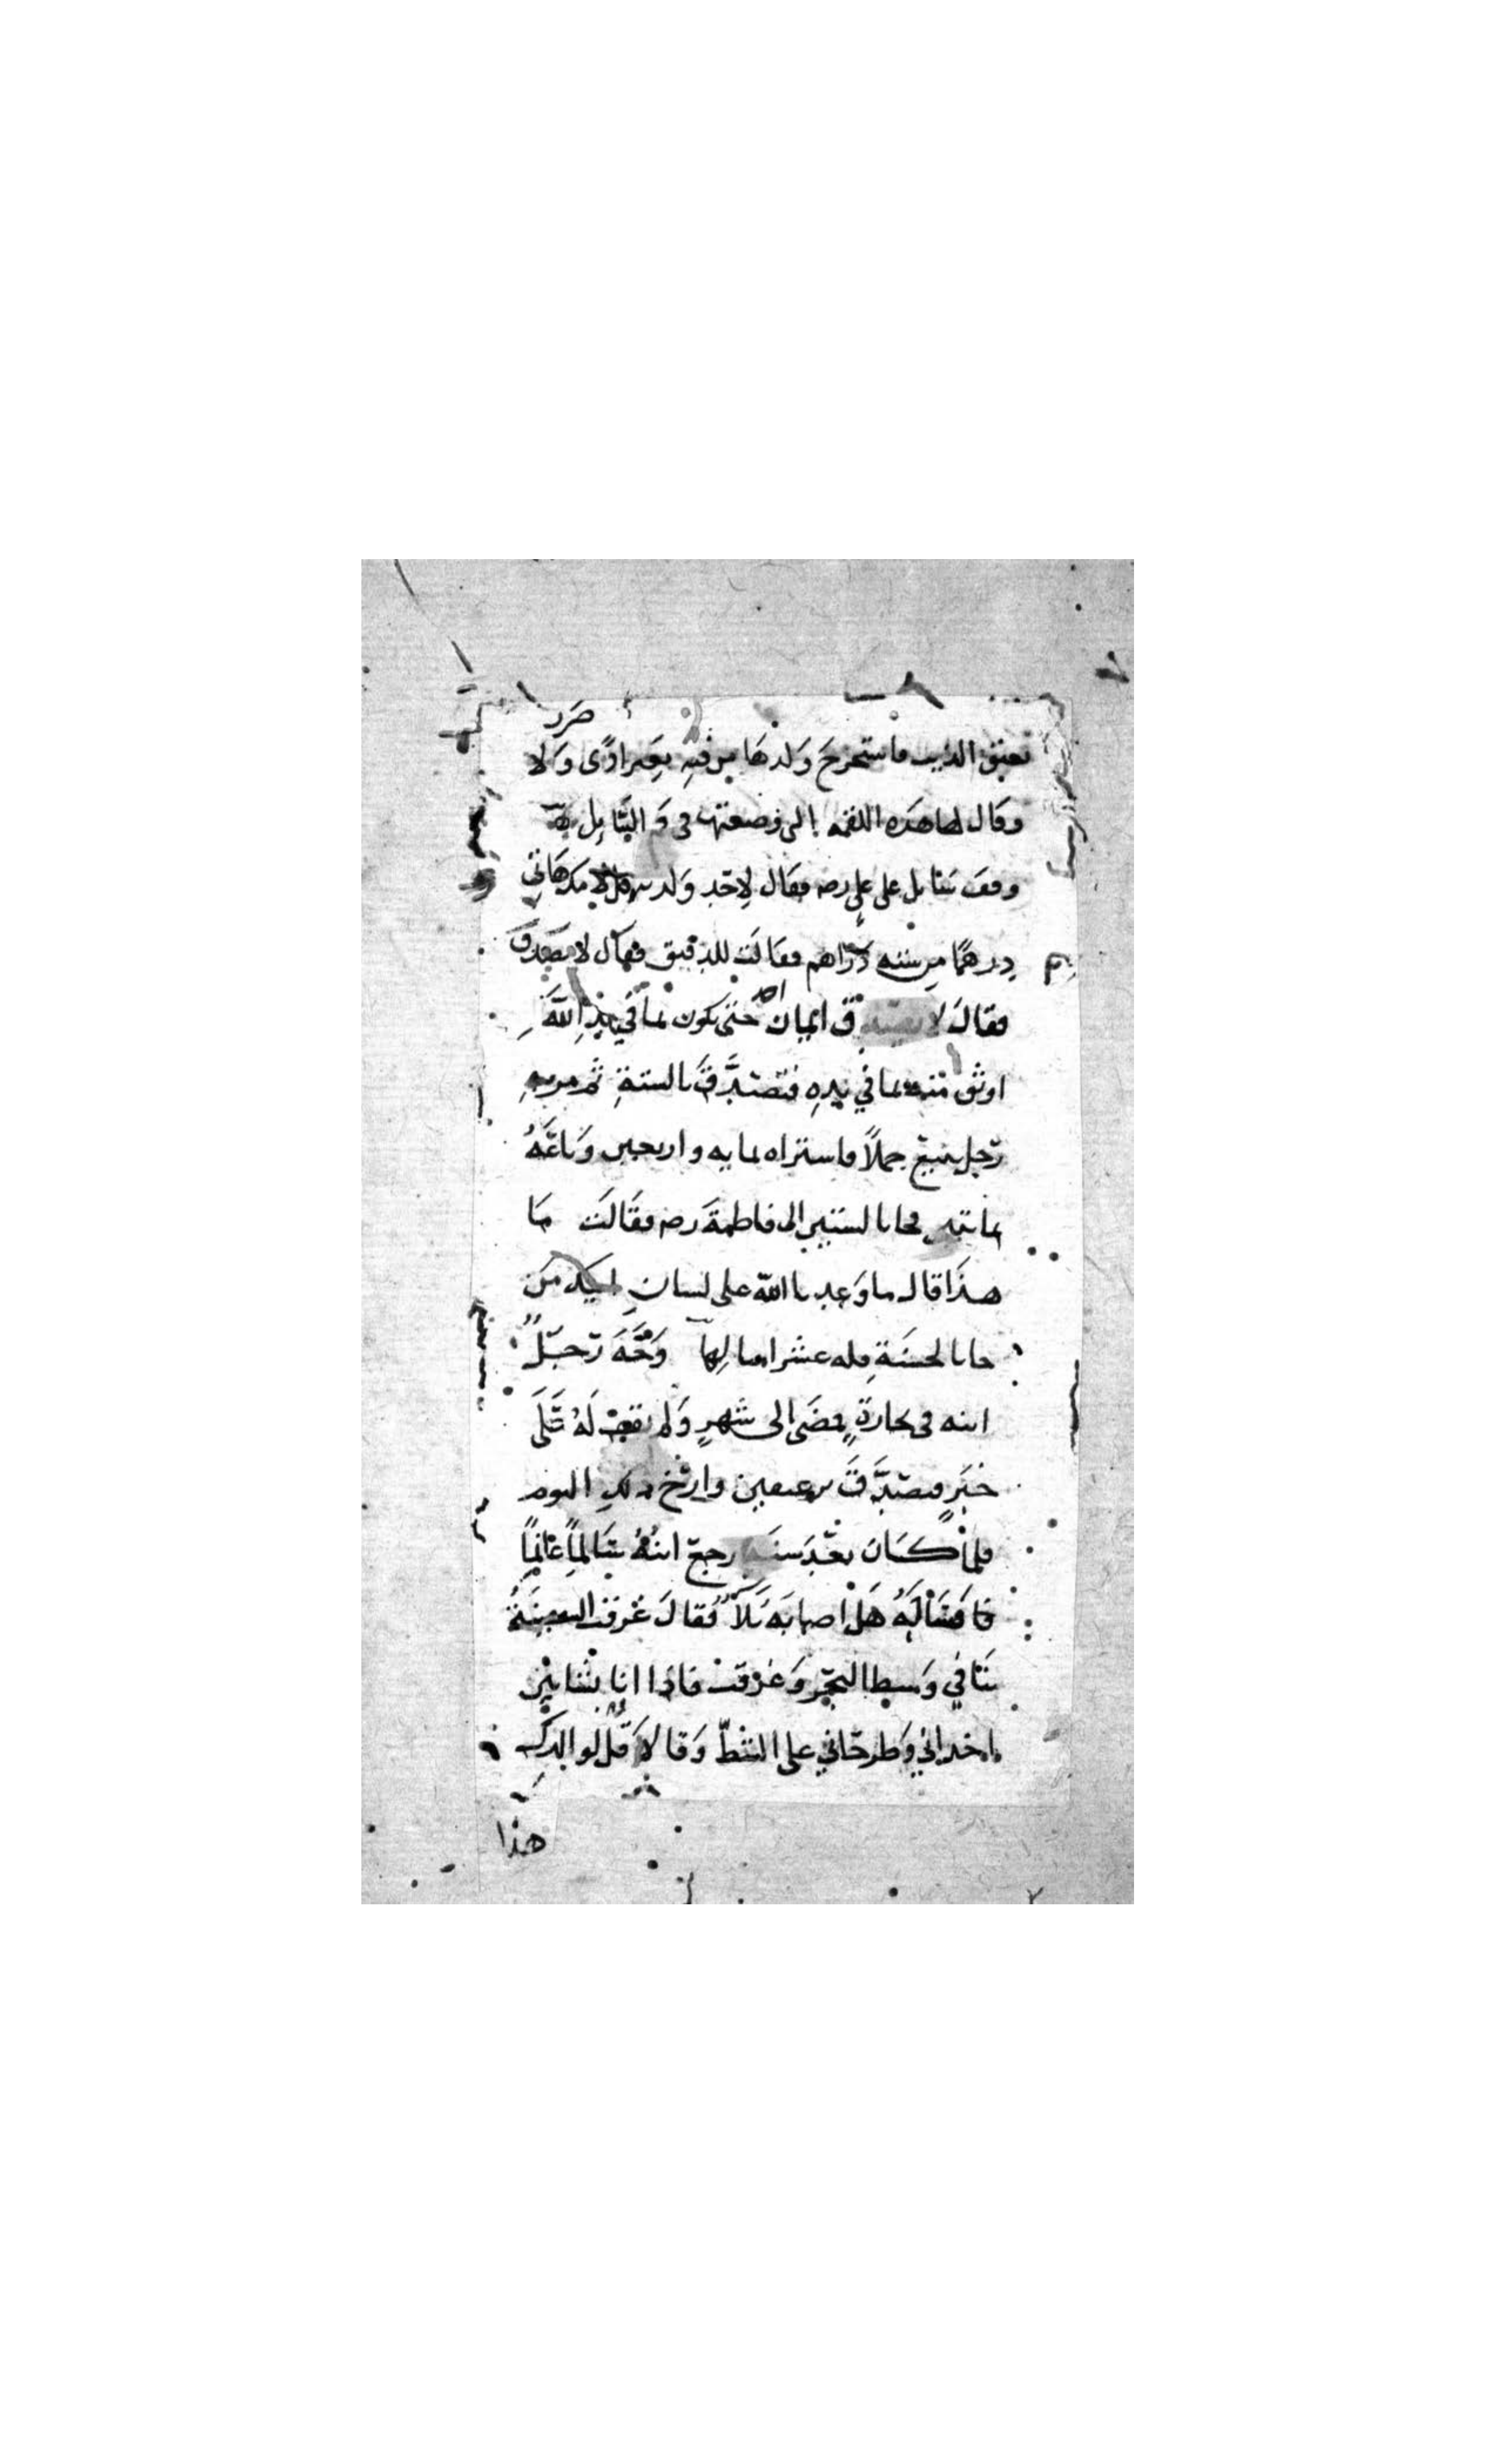 ضرر
بعنق الذيب فاستخرج ولدها من فيه بغير اذى ولا
وقال لها هذه اللقمة التى وضعتها فى فم السّايل
وقف سايل على على رضه فقال لاحد ولديه قل لامك هاتي
درهمًا من ستة دراهم فقالت للدقيق فقال لا يصدق
فقال لا يصدق ايمان احد حتى يكون بما في يد الله
اوثق منه بما في يده فتصدّق بالستة ثم مر به
رجل يبيع جملاً فاستراه بمايه واربعين وباعه
بمائتين فجا بالستين الى فاطمة رضه فقالت ما
هذا قال ما وعدنا الله على لسان ابيك من
جا بالحسنة فله عشر امثالها وجّه رجلٌ
ابنه فى تجارةٍ فمضى الى شهرٍ ولم يقع له على
خبرٍ فتصدّق برغيفين وارّخ ذلك اليوم
فلما كان بعد سنة رجع ابنه سالمًا غانمًا
فساله هل اصابه بلاءٌ فقال غرقت السفينة
بنا في وسط البحر وغرقت فاذا انا بشابين
اخذاني وطرحاني على الشطّ وقالا قل لوالدك
هذا